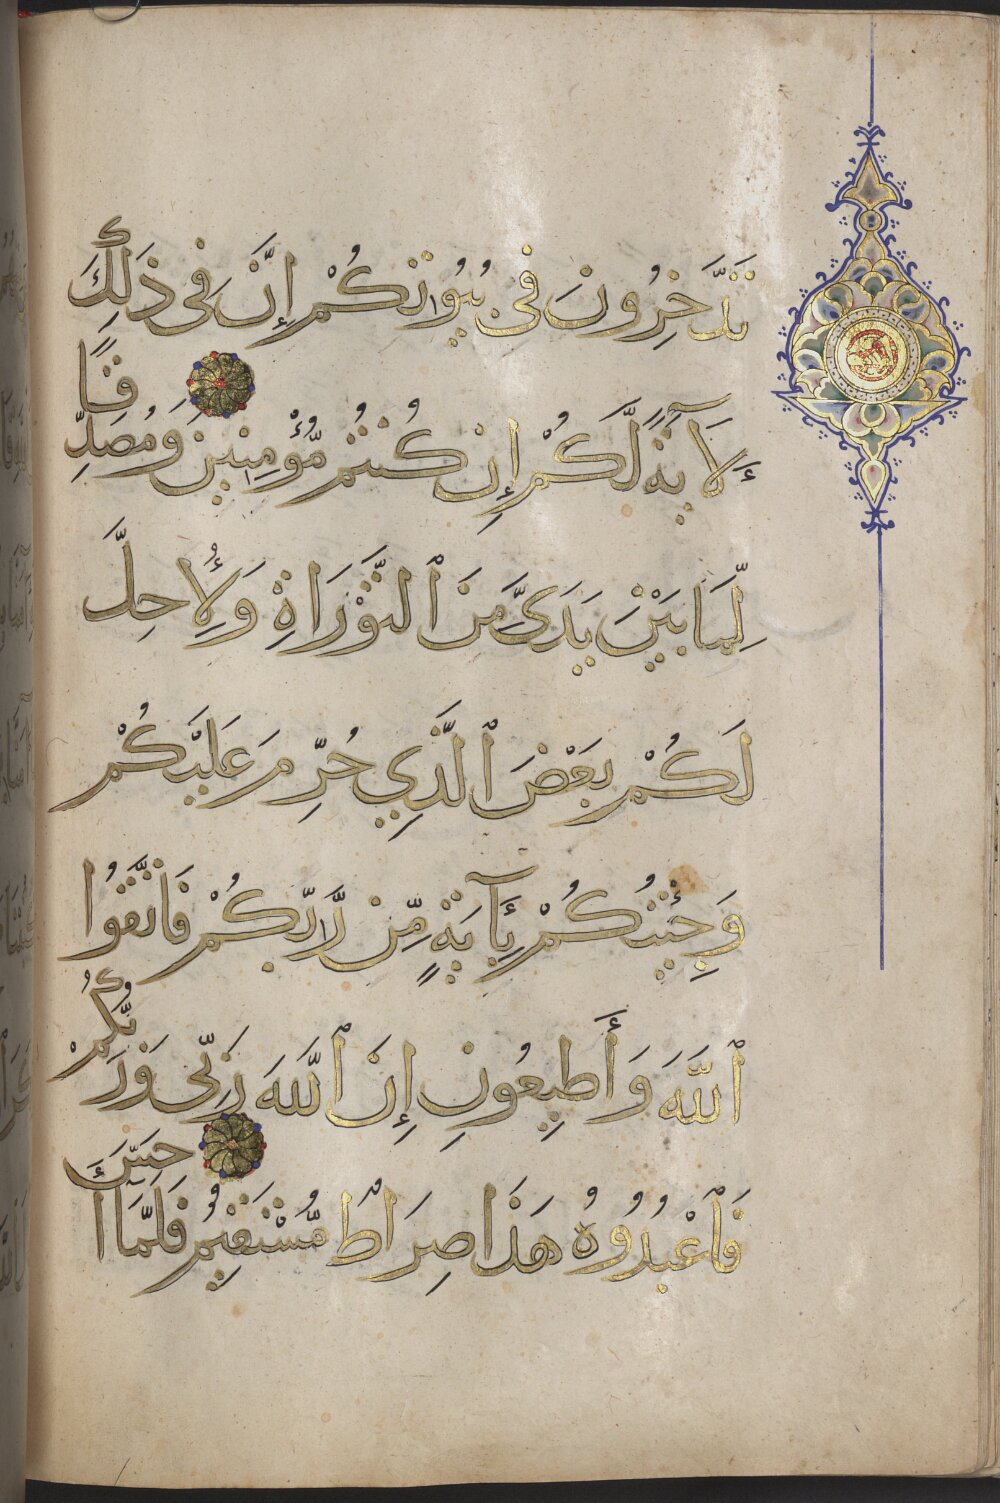 تَدَّخِرُونَ فِى بُيُوتِكُمْ إِنَّ فِى ذَلِكَ
لَآيَةً لَّكُمْ إِن كُنتُم مُّؤْمِنِينَ وَمُصَدِّقًا
لِّمَا بَيْنَ يَدَىَّ مِنَ ٱلتَّوْرَاةِ وَلِأُحِلَّ
لَكُمْ بَعْضَ ٱلَّذِي حُرِّمَ عَلَيْكُمْ
وَجِئْتُكُمْ بِـَٔايَةٍ مِّن رَّبِّكُمْ فَاتَّقُوا
ٱللَّهَ وَأَطِيعُونِ إِنَّ ٱللَّهَ رَبِّى وَرَبُّكُمْ
فَٱعْبُدُوهُ هَذَا صِرَاطٌ مُّسْتَقِيمٌ فَلَمَّا أَحَسَّ